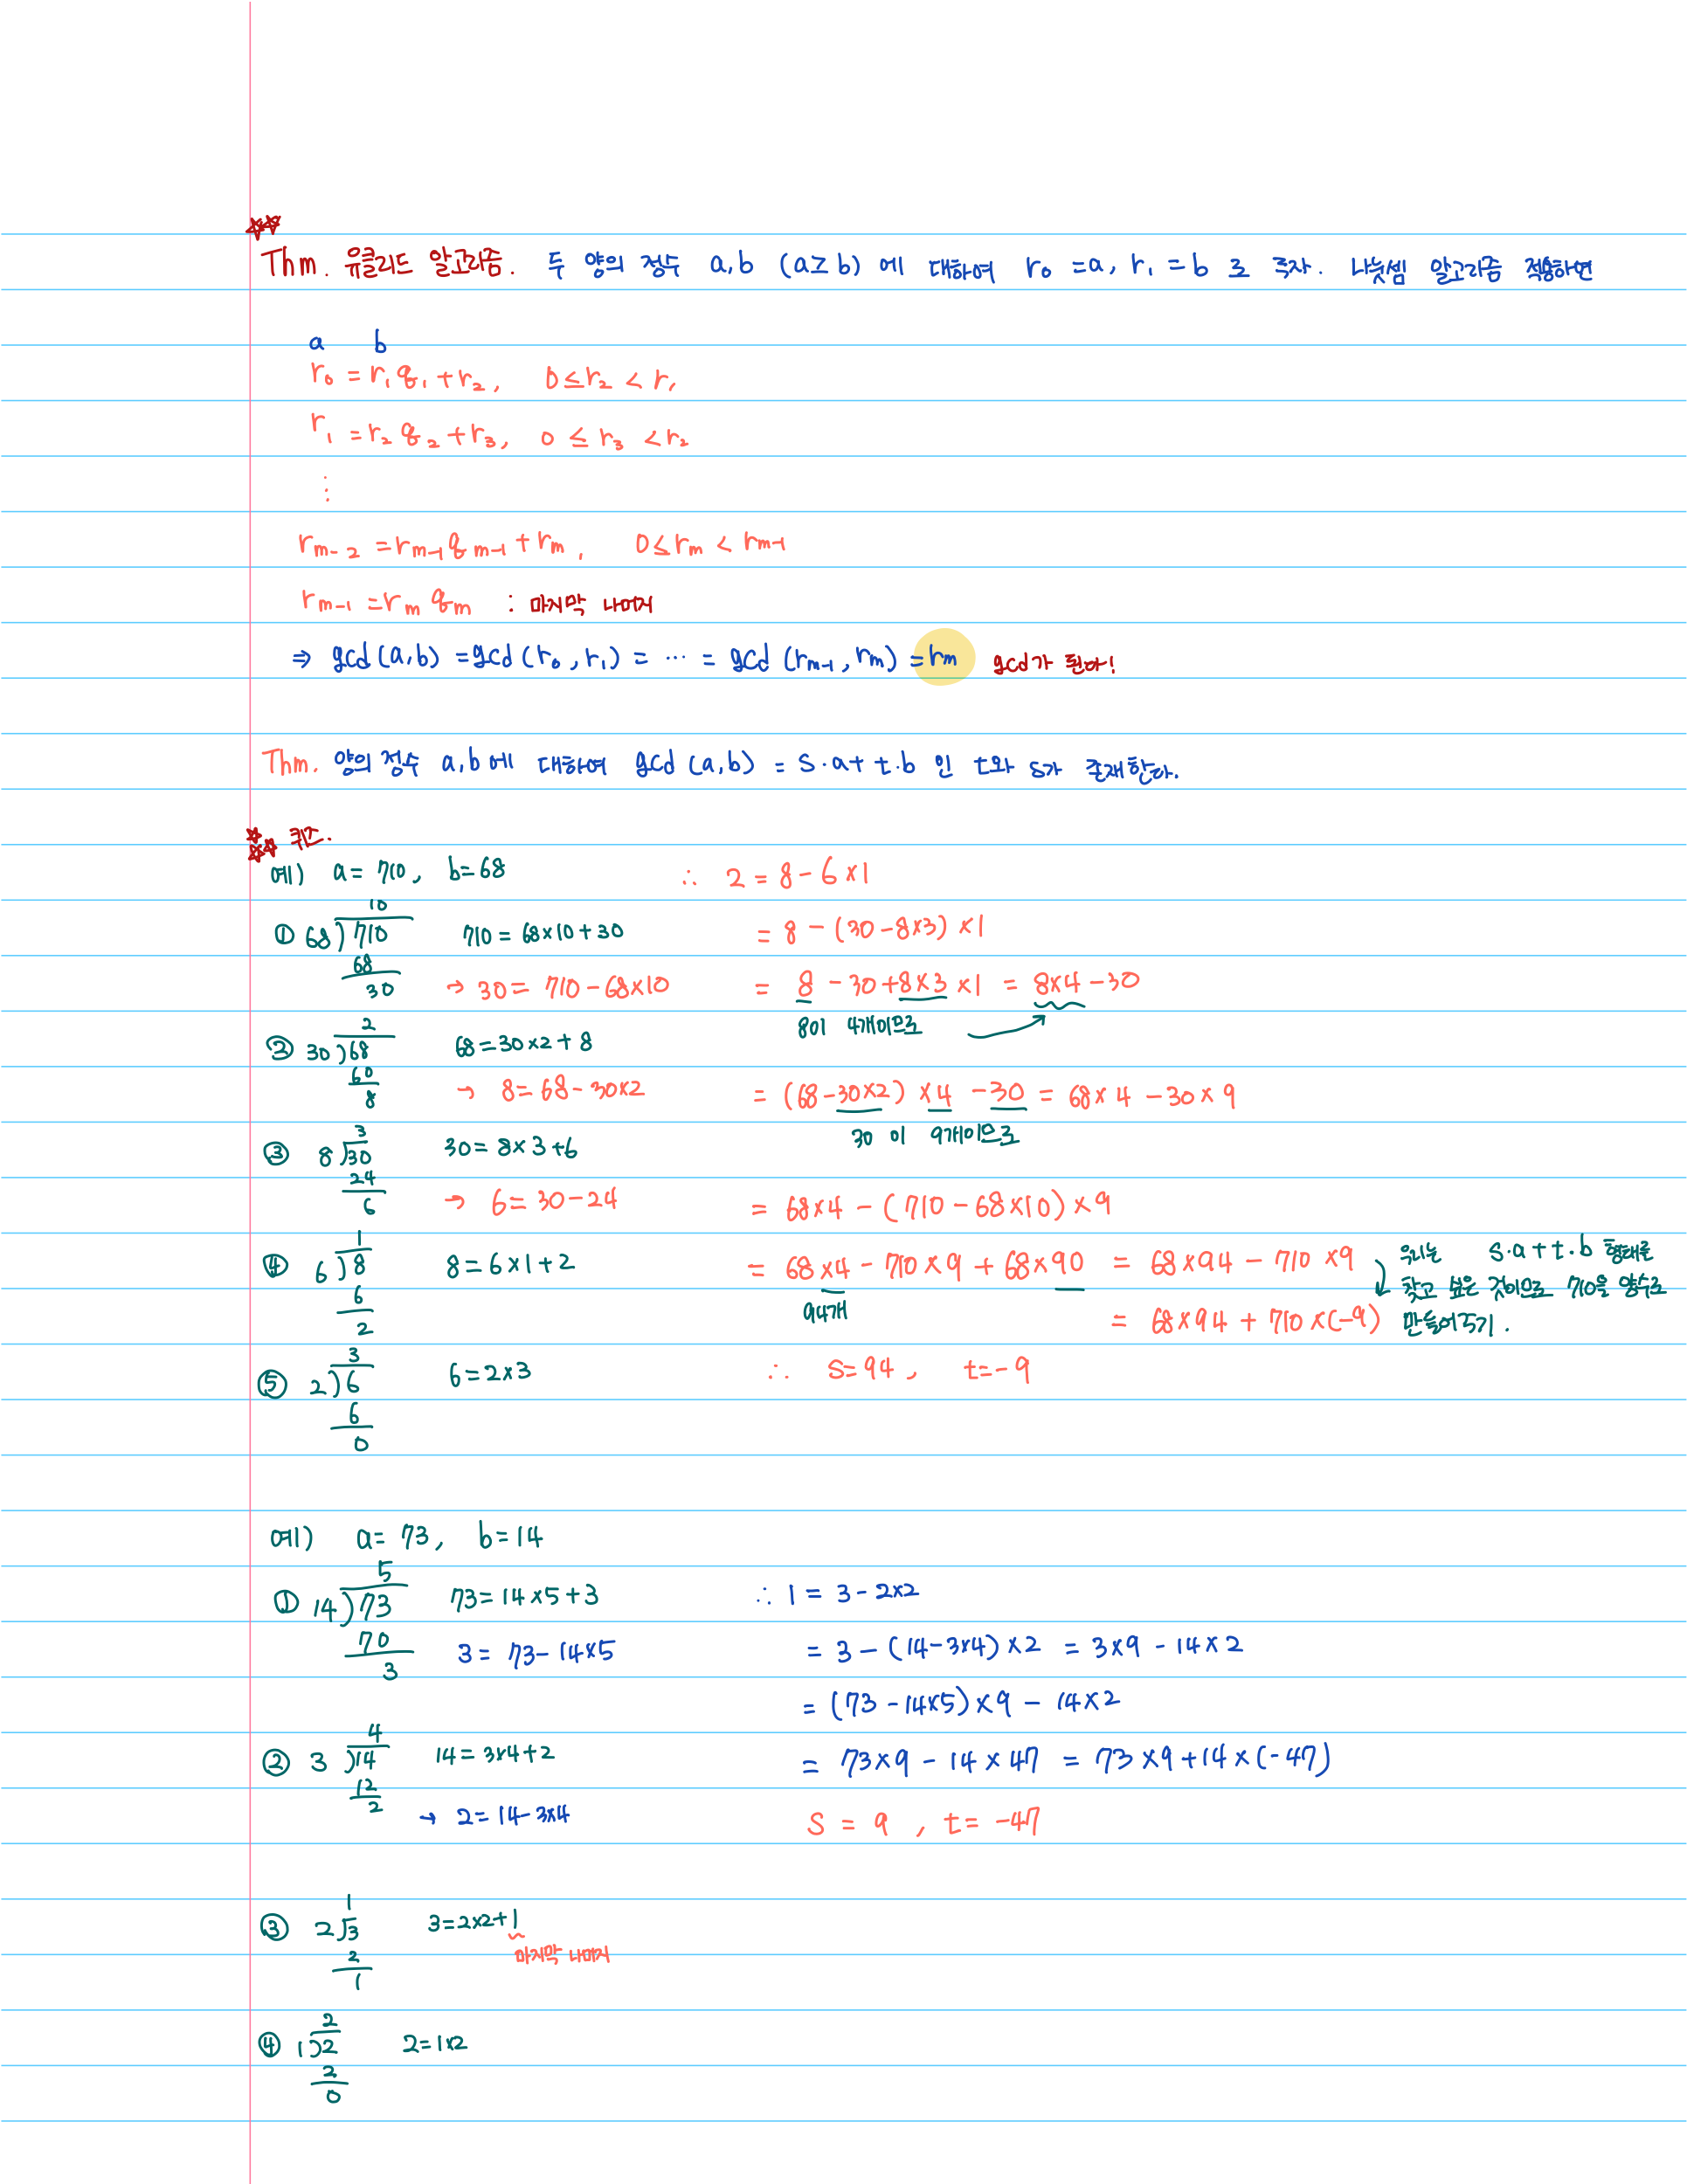 ☆☆
Thm. 유클리드 알고리즘. 두 양의 정수 a,b (a≥b) 에 대하여 r₀ =a, r₁ =b 로 두자. 나눗셈 알고리즘 적용하면
a b
r₀ = r₁q₁ + r₂, 0≤r₂ < r₁
r₁ = r₂q₂ + r₃, 0 ≤ r₃ < r₂
⋮
rₘ₋₂ = rₘ₋₁qₘ₋₁ + rₘ, 0≤rₘ < rₘ₋₁
rₘ₋₁ = rₘqₘ : 마지막 나머지
⇒ gcd(a,b) = gcd(r₀,r₁) = ⋯ = gcd(rₘ₋₁,rₘ) = rₘ gcd가 된다!
Thm. 양의 정수 a,b에 대하여 gcd(a,b) = s·a+t·b 인 t와 s가 존재한다.
☆☆☆ 퀴즈.
예) a= 710, b=68
① 68)710
10
68
30
710 = 68×10+30
→ 30= 710-68×10
② 30)68
2
60
8
68=30×2+8
→ 8=68-30×2
③ 8)30
3
24
6
30=8×3+6
→ 6=30-24
④ 6)8
1
6
2
8=6×1+2
⑤ 2)6
3
6
0
6=2×3
∴ 2 = 8-6×1
= 8-(30-8×3)×1
= 8-30+8×3×1 = 8×4-30
8이 4개이므로
= (68-30×2)×4-30 = 68×4-30×9
30 이 9개이므로
= 68×4-(710-68×10)×9
= 68×4-710×9+68×90 = 68×94-710×9
94개
= 68×94+710×(-9)
우리는 s·a+t·b 형태를
찾고 싶은 것이므로 710을 양수로
만들어주기.
∴ s=94, t=-9
예) a= 73, b=14
① 14)73
5
70
3
73=14×5+3
3= 73-14×5
② 3)14
4
12
2
14=3×4+2
→ 2=14-3×4
③ 2)3
1
2
1
3=2×2+1
마지막 나머지
④ 1)2
2
2
0
2=1×2
∴ 1 = 3-2×2
= 3-(14-3×4)×2 = 3×9-14×2
= (73-14×5)×9-14×2
= 73×9-14×47 = 73×9+14×(-47)
s = 9, t= -47